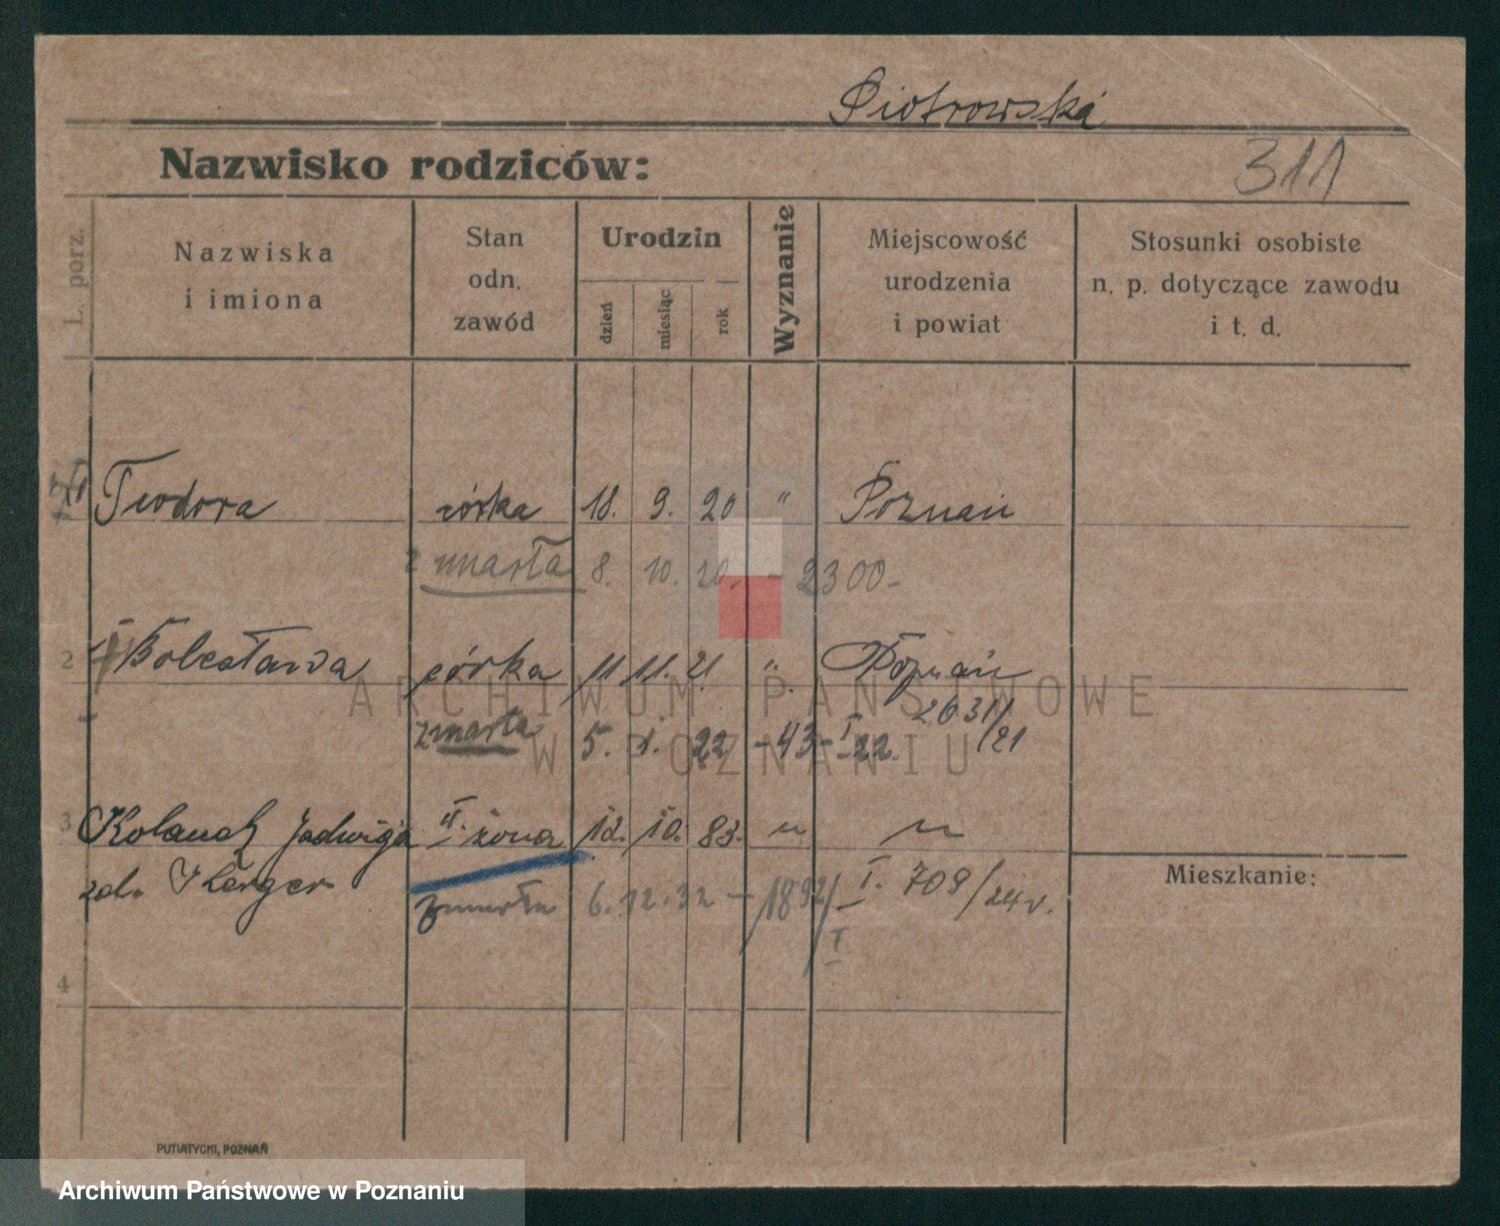 Piotrowska
Nazwisko rodziców:
311
L. porz.
Nazwiska
i imiona
Stan
odn.
zawód
Urodzin
dzień
miesiąc
rok
Wyznanie
Miejscowość
urodzenia
i powiat
Stosunki osobiste
n. p. dotyczące zawodu
i t. d.
Teodora córka 18. 9. 20 " Poznań
zmarła 8. 10. 20. - 2300-
2 Bolesława córka 11 11. 21 " Poznań
2631/21
zmarła 5. 1. 22 - 43 - I 22.
3 Jadwiga II. żona 12. 10. 83. " "
zmarła 6. 12. 32 - 1892/I. I. 709/24 r.
Mieszkanie:
4
PUTIATYCKI, POZNAŃ
ARCHIWUM PAŃSTWOWE
W POZNANIU
Archiwum Państwowe w Poznaniu